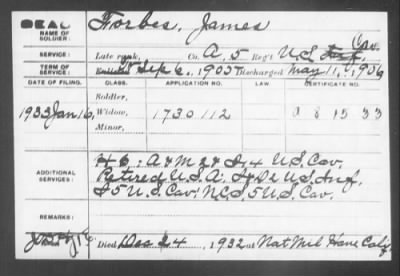 DEAD
NAME OF SOLDIER: Forbes, James
SERVICE: Late rank, Co. A, 5 Reg't U.S. Inf. Cav.
TERM OF SERVICE: Enlisted Sep 6, 1903 Discharged May 11, 1906
DATE OF FILING. CLASS. APPLICATION NO. LAW. CERTIFICATE NO.
Soldier,
1933 Jan 16, Widow, 1730112 A 8 15 33
Minor,
ADDITIONAL SERVICES: H 6: A & M 2 & D, 4 U.S. Cav.
Retired U.S.A. U.S. Inf.
I 5 U.S. Cav. NCS, 5 U.S. Cav.
REMARKS:
Died Dec 24, 1932 at Nat Mil Home Calif